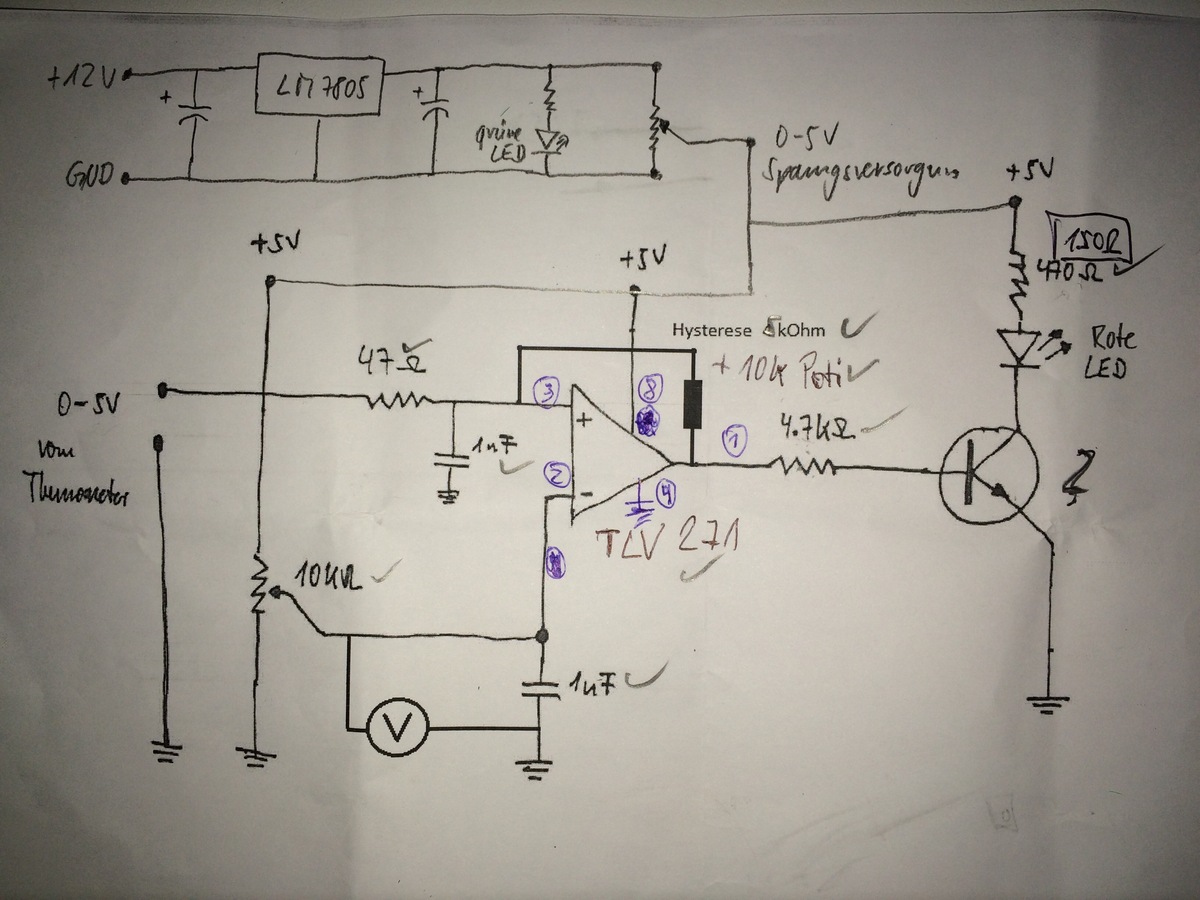 +12V
LM7805
+
+
grüne
LED
GND
0-5V
Spanungsversorgung
+5V
+5V
+5V
150Ω
470Ω
Hysterese kOhm
+ 10k Poti
Rote
LED
47Ω
0-5V
vom
Thermometer
3
+
8
1
4.7kΩ
1nF
2
-
4
TLV 271
10kΩ
1nF
V